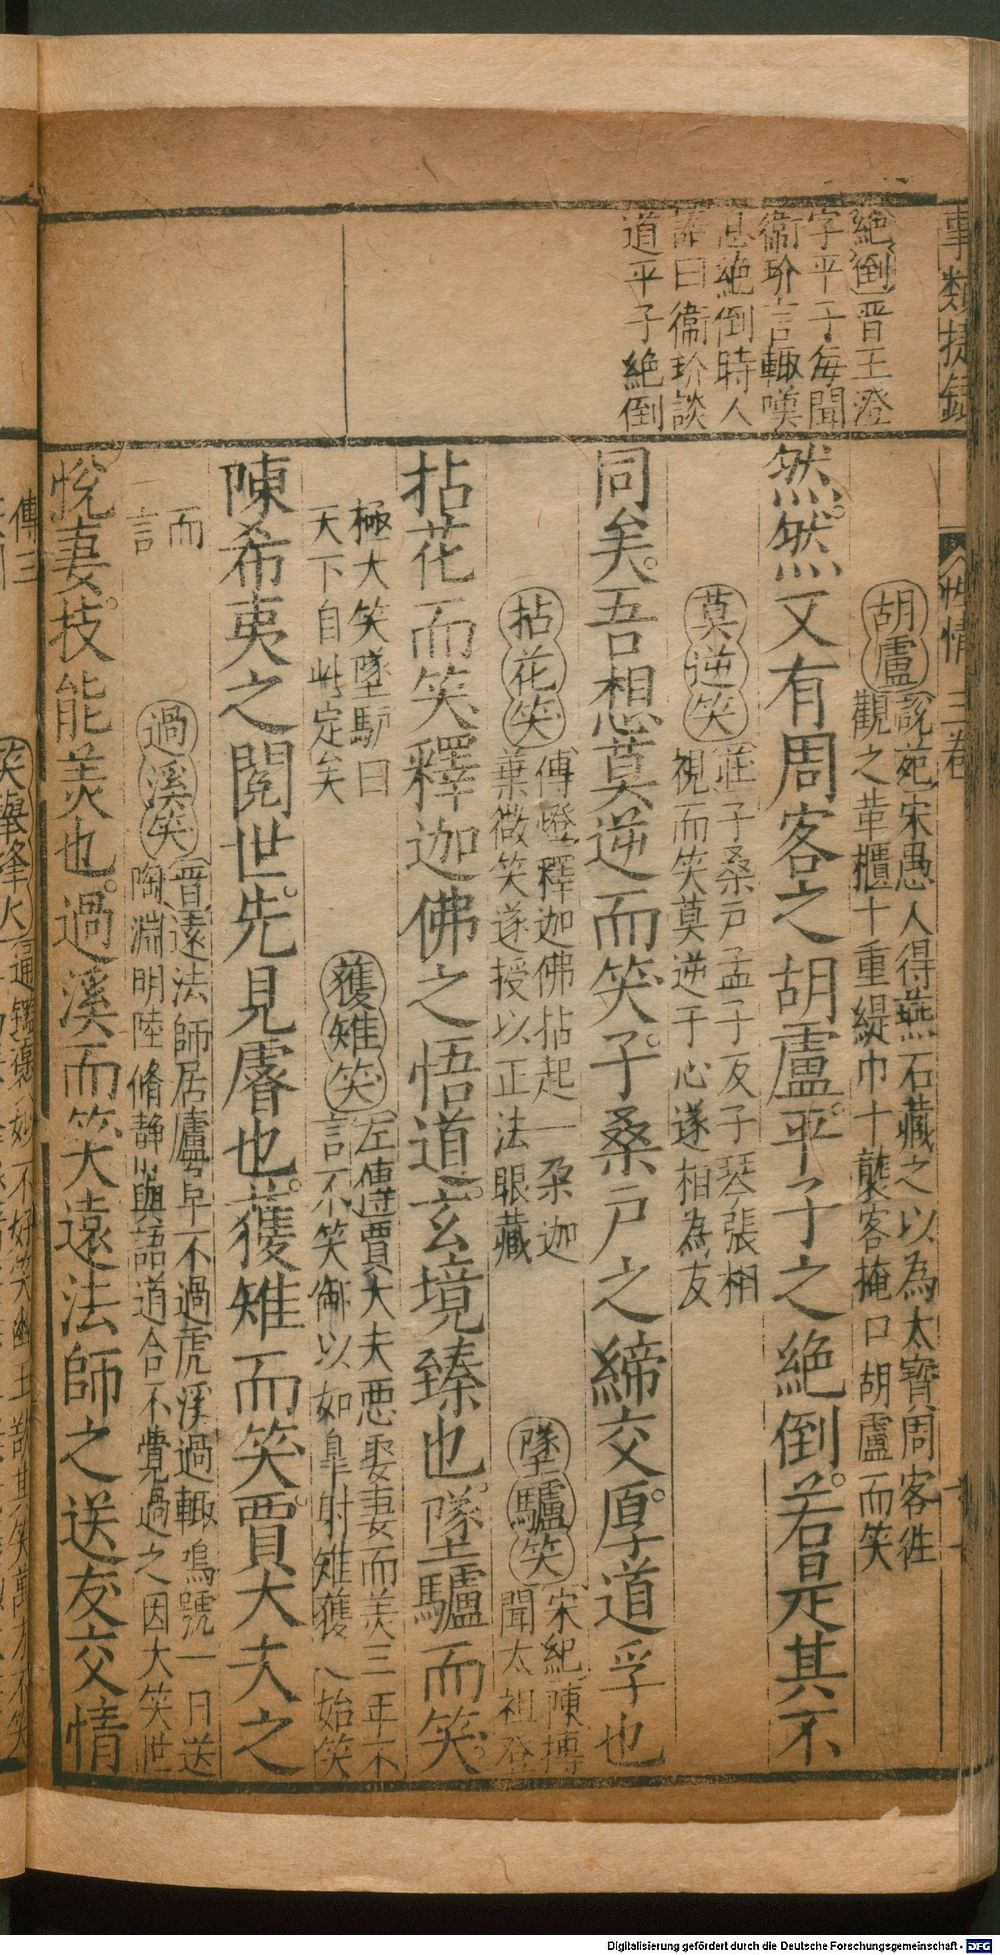 事類捷錄
性情 三卷
絕倒晋王澄
字平子每聞
衞玠言輒嘆
息絶倒時人
語曰衞玠談
道平子絕倒
胡盧說苑宋愚人得燕石藏之以為太寳周客徃
觀之革櫃十重緹巾十襲客掩口胡盧而笑
然然又有周客之胡盧平子之絕倒若是其不
莫逆笑莊子桑戸孟子反子琴張相
視而笑莫逆于心遂相為友
同矣吾想莫逆而笑子桑戸之締交厚道孚也
拈花笑傳燈釋迦佛拈起一朶迦
葉微笑遂授以正法眼藏
墜驢笑宋紀陳摶
聞太祖登
拈花而笑釋迦佛之悟道玄境臻也墜驢而笑
極大笑墜馿曰
天下自此定矣
獲雉笑左傳賈大夫惡娶妻而美三年不
言不笑御以如臯射雉獲之始笑
陳希夷之閱世先見睿也獲雉而笑賈大夫之
而
言
過溪笑晋遠法師居廬阜不過虎溪過輒鳴號一日送
陶淵明陸脩静與語道合不覺過之因大笑世
悅妻技能美也過溪而笑遠法師之送友交情
傳三
笑舉烽火通鑑褒姒不好笑幽王
其笑萬方不笑
Digitalisierung gefördert durch die Deutsche Forschungsgemeinschaft - DFG